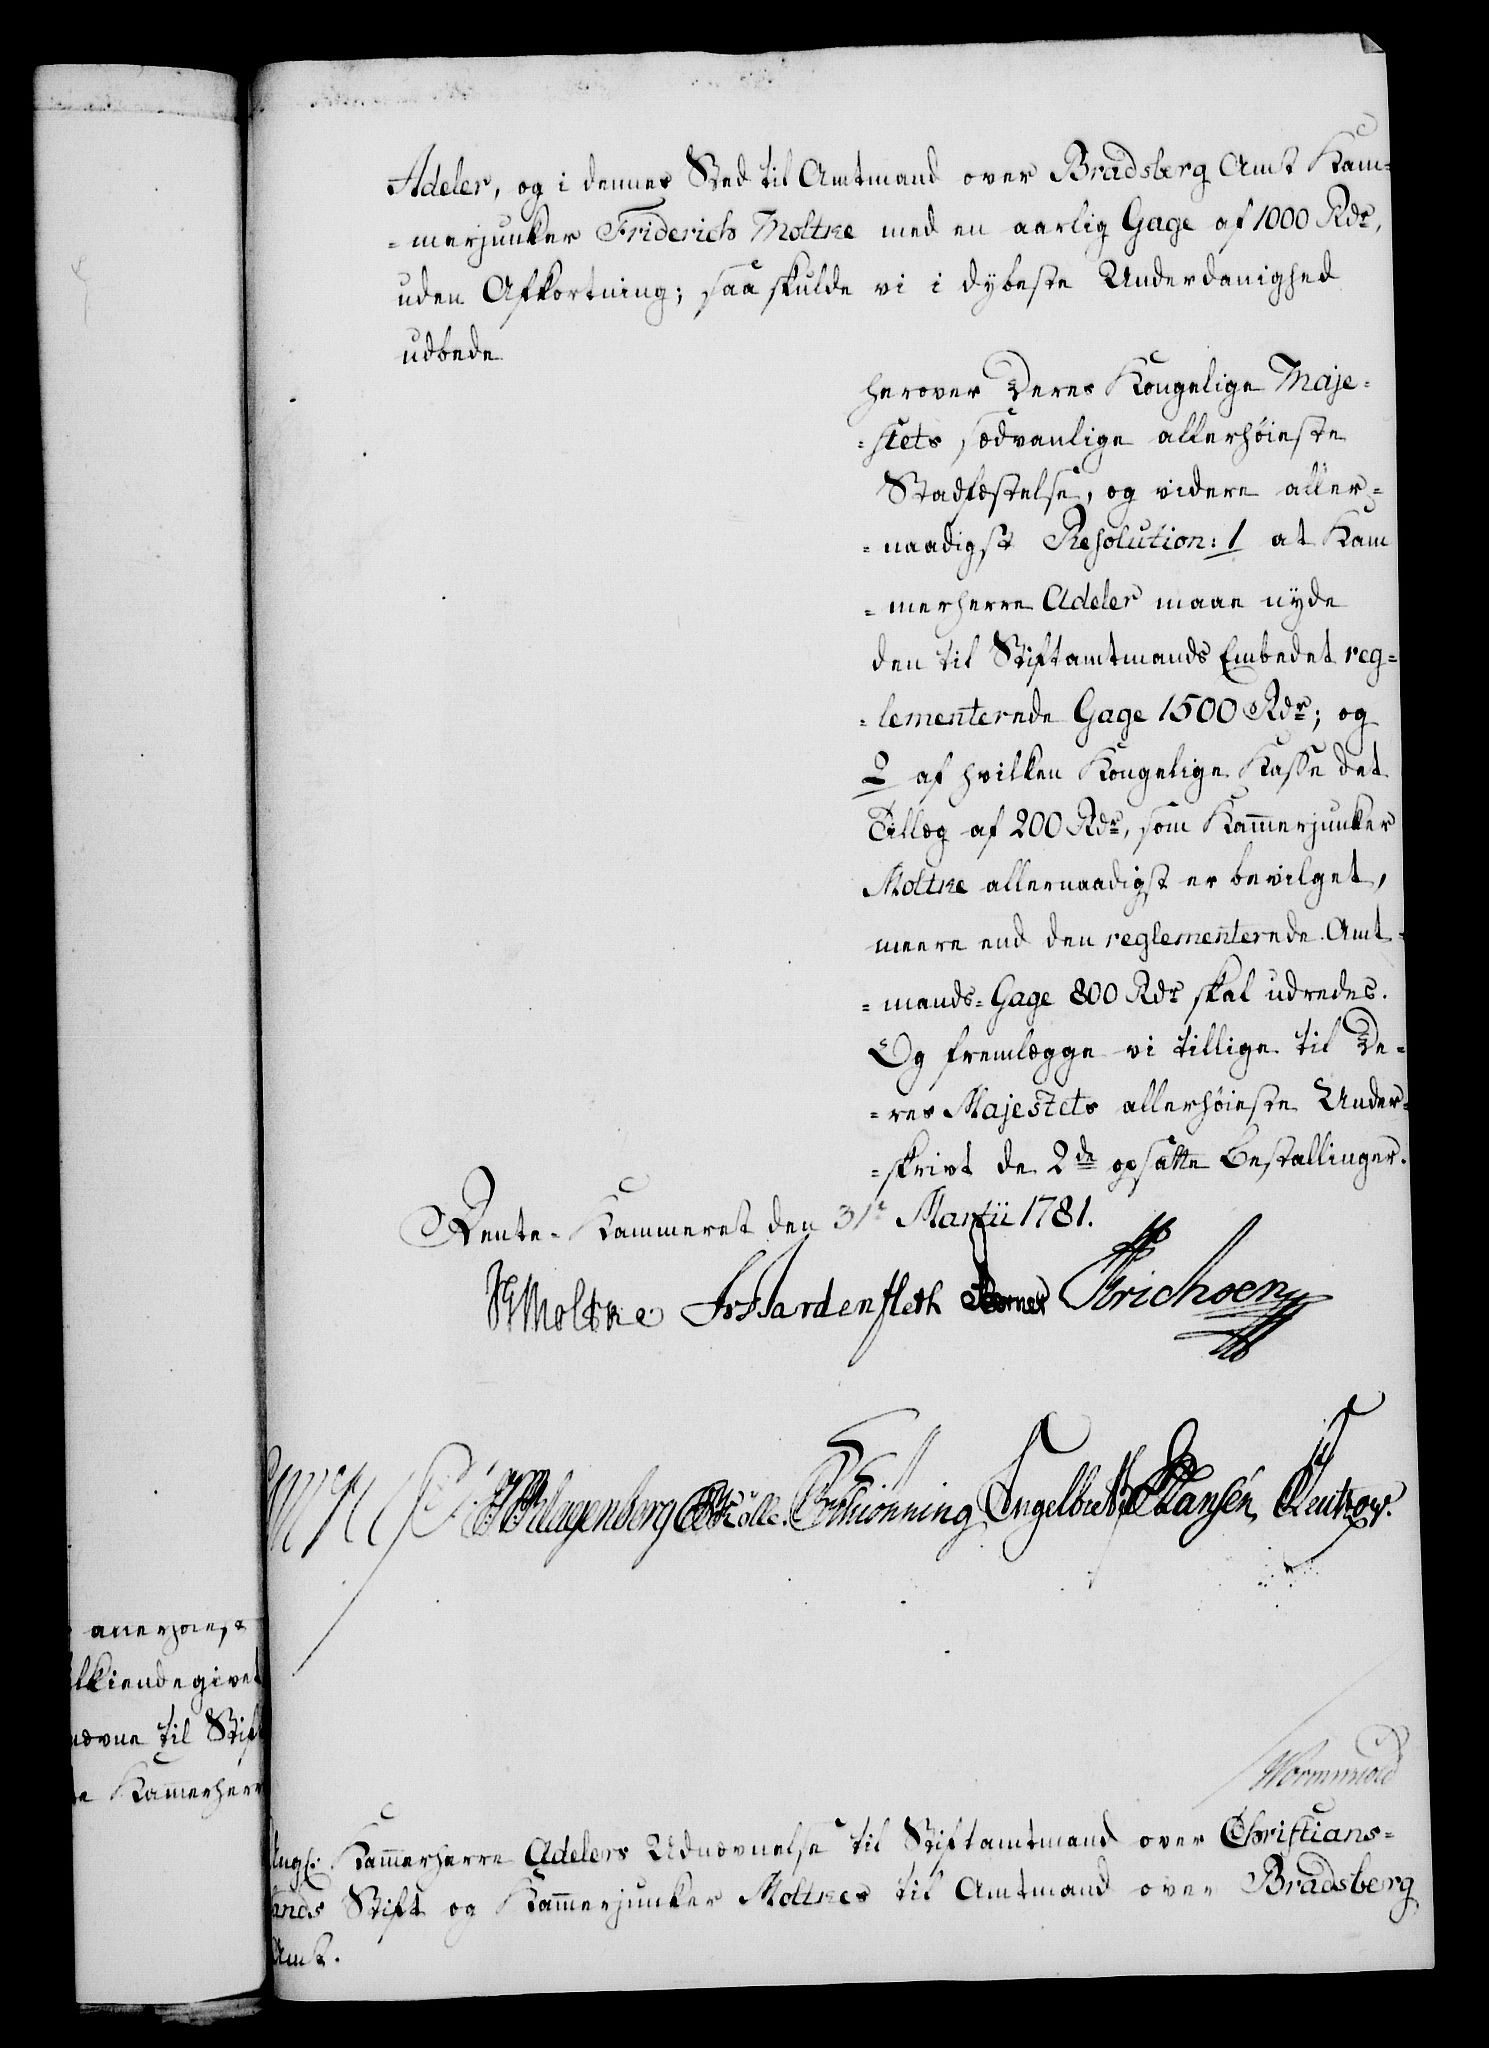 Adeler, og i dennes Sted til Amtmand over Bradsberg Amt Kam-
-merjunker Friderich Moltke med en aarlig Gage af 1000 Rdr,
uden Afkortning; saa skulde vi i dybeste Underdanighed
udbede
herover Deres Kongelige Maje-
-stets sædvanlige allerhøieste
Stadfæstelse, og videre aller-
-naadigst Resolution: 1 at Kam
-merherre Adeler maae nyde
den til Stiftamtmands Embedet reg-
-lementerede Gage 1500 Rdr; og
2 af hvilken Kongelige Kasse det
Tillæg af 200 Rdr, som Kam̄erjunker
Moltke allernaadigst er bevilget,
meere end den reglementerede Amt-
-mands-Gage 800 Rdr skal udredes.
Og fremlægge vi tillige til De-
-res Majestets allerhøieste Under-
-skrivt de 2de opsatte Bestallinger.
Rente-Kammeret den 31te Martii 1781.
Moltke Hardenfleth Erichsen
Klagenberg Schiönning Engelbret Hansen
allerhøiest
ilkiendegivet
nævne til Stif
Kam̄erherr
Wormskiold
Ang: Kam̄erherre Adelers Udnævnelse til Stiftamtmand over Christians-
ands Stift og Kam̄erjunker Moltkes til Amtmand over Bradsberg
Amt.